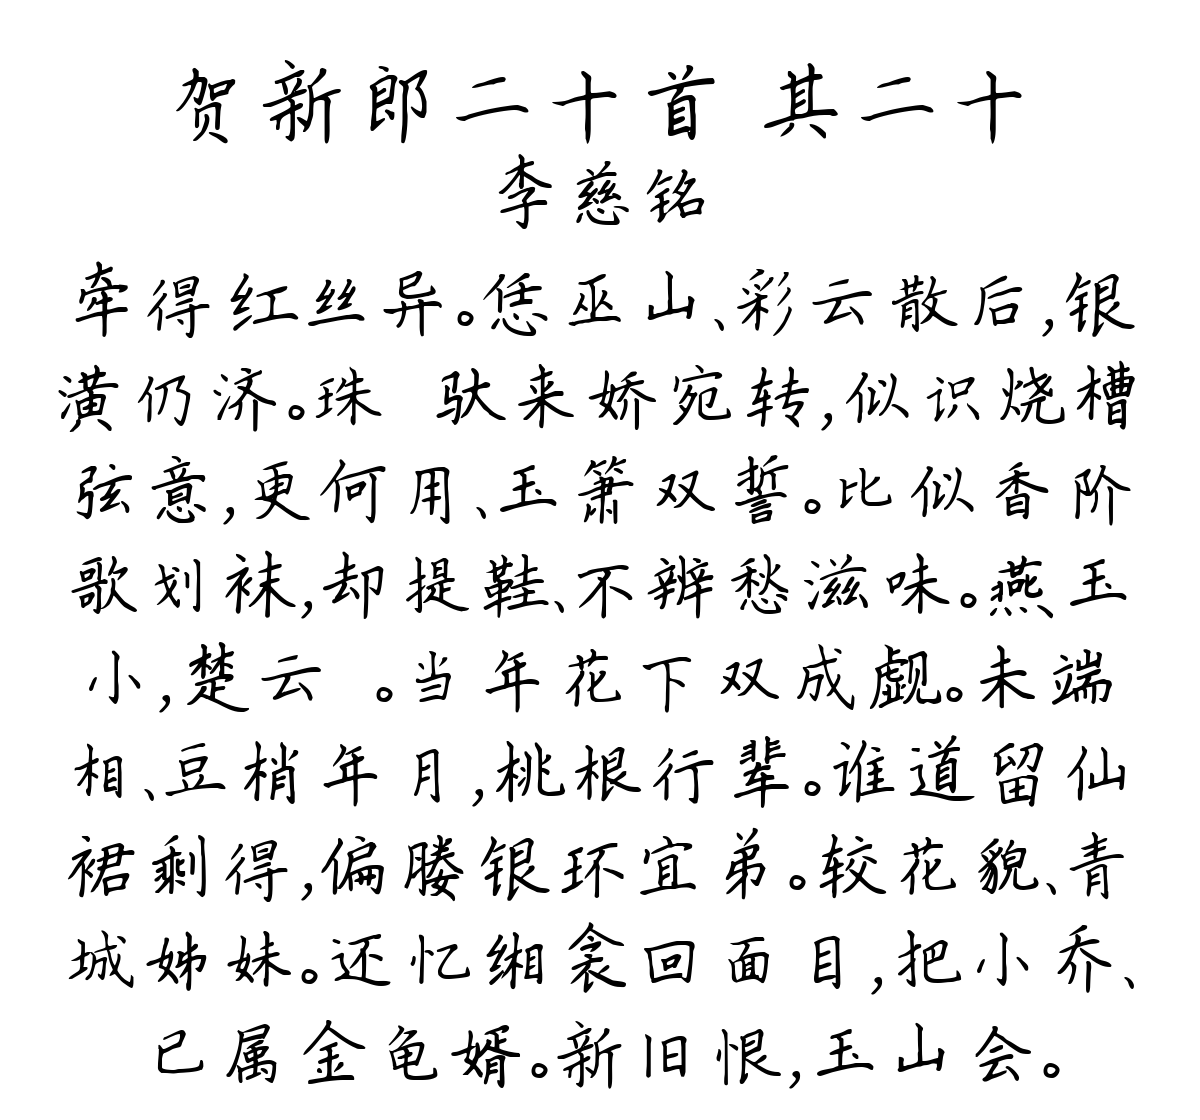 贺新郎二十首 其二十
李慈铭
牵得红丝异。恁巫山、彩云散后,银
潢仍济。珠 驮来娇宛转,似识烧槽
弦意,更何用、玉箫双誓。比似香阶
歌划袜,却提鞋、不辨愁滋味。燕玉
小,楚云 。当年花下双成觑。未端
相、豆梢年月,桃根行辈。谁道留仙
裙剩得,偏媵银环宜弟。较花貌、青
城姊妹。还忆缃衾回面目,把小乔、
已属金龟婿。新旧恨,玉山会。